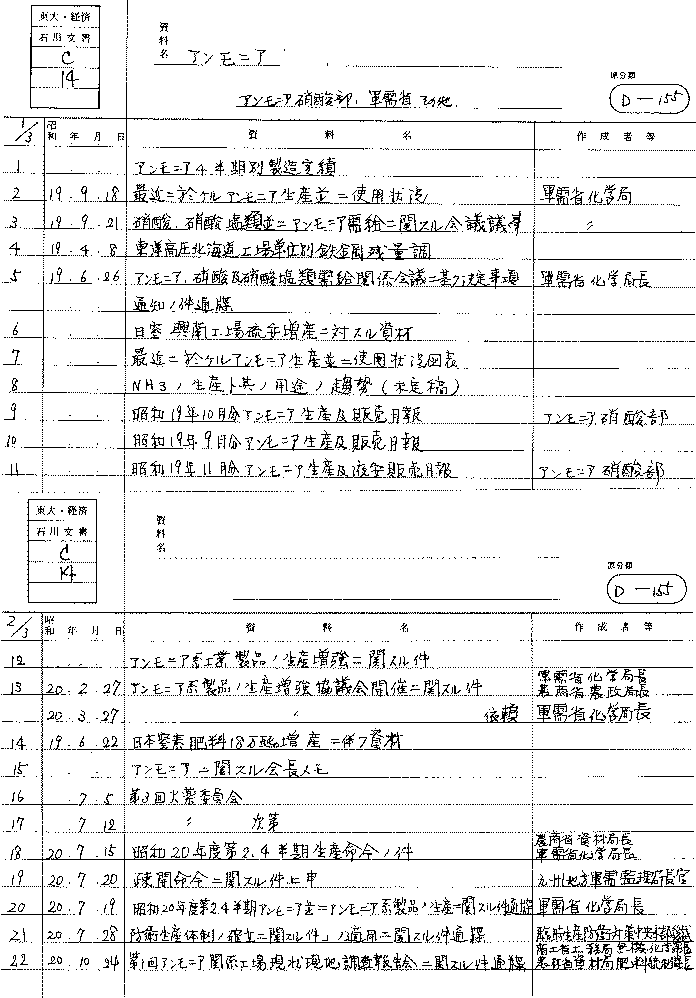 東大・経済
石川文書
C
14
資料名 アンモニア
アンモニア硝酸部、軍需省 その他
原分類
D-155
1/3 昭和 年 月 日 資料名 作成者等
1 アンモニア4半期別製造実績
2 19.9.18 最近ニ於ケルアンモニア生産並ニ使用状況 軍需省化学局
3 19.9.21 硝酸、硝酸塩類並ニアンモニア需給ニ関スル会議議事 〃
4 19.4.8 東洋高圧北海道工場単位別鉄鋼残量調
5 19.6.26 アンモニア、硝酸及硝酸塩類需給関係会議ニ基ク決定事項 軍需省化学局長
通知ノ件通牒
6 日窒興南工場硫安増産ニ対スル資材
7 最近ニ於ケルアンモニア生産並ニ使用状況図表
8 NH3ノ生産ト其ノ用途ノ趨勢(未定稿)
9 昭和19年10月分アンモニア生産及販売月報 アンモニア硝酸部
10 昭和19年9月分アンモニア生産及販売月報
11 昭和19年11月分アンモニア生産及液安販売月報 アンモニア硝酸部
東大・経済
石川文書
C
14
資料名
原分類
D-155
2/3 昭和 年 月 日 資料名 作成者等
12 アンモニア系工業製品ノ生産増強ニ関スル件
13 20.2.27 アンモニア系製品ノ生産増強協議会開催ニ関スル件 軍需省化学局長
農商省農政局長
20.3.27 〃 依頼 軍需省化学局長
14 19.6.22 日本窒素肥料18万瓲増産ニ伴フ資材
15 アンモニアニ関スル会長メモ
16 7 5 第3回火薬委員会
17 7 12 〃 次第
18 20.7.15 昭和20年度第2.4半期生産命令ノ件 農商省資材局長
軍需省化学局長
19 20.7.20 疎開命令ニ関スル件上申 九州地方軍需監理局長官
20 20.7.19 昭和20年度第2.4半期アンモニア並ニアンモニア系製品ノ生産ニ関スル件通牒 軍需省化学局長
21 20.7.28 防衛生産体制ノ確立ニ関スル件」ノ適用ニ関スル件通牒
22 20.10.24 第1回アンモニア関係工場現状現地調査報告会ニ関スル件通牒